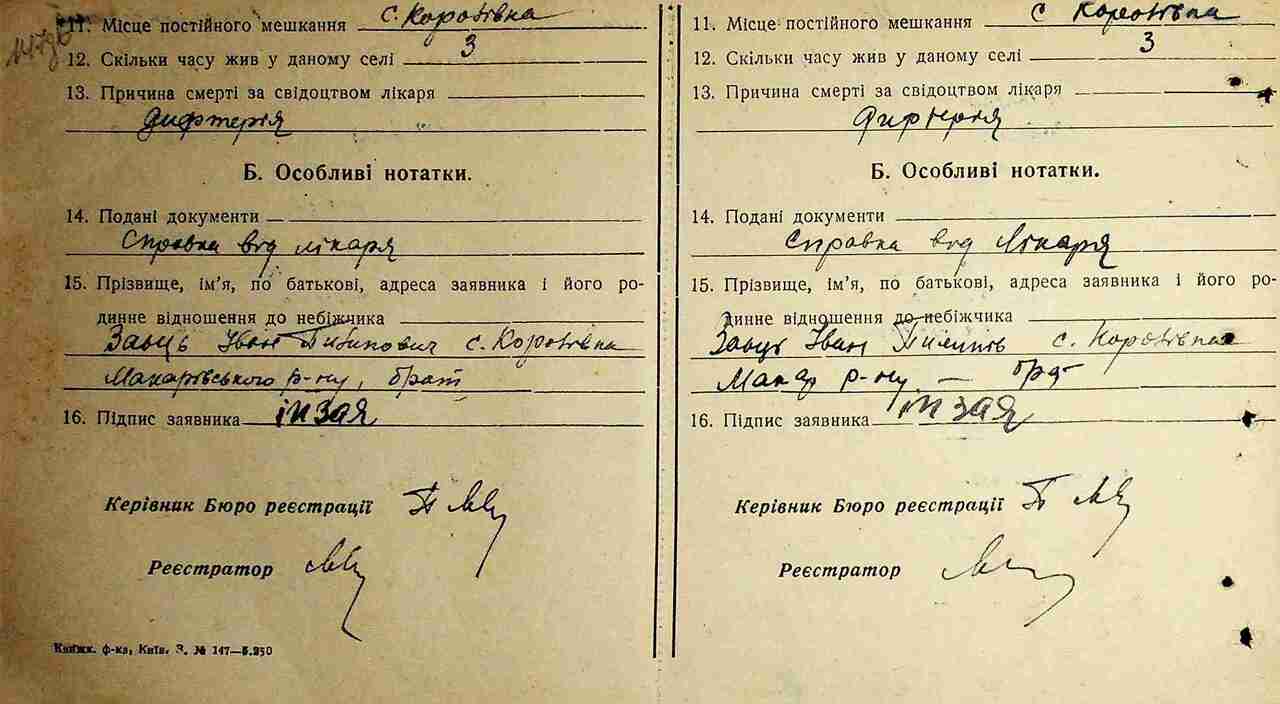 11. Місце постійного мешкання с. Коротівка
12. Скільки часу жив у даному селі 3
13. Причина смерті за свідоцтвом лікаря
дифтерія
Б. Особливі нотатки.
14. Подані документи
Справка від лікаря
15. Прізвище, ім’я, по батькові, адреса заявника і його ро-
динне відношення до небіжчика
Заяць Іван с. Коротівка
Макарівського р-ну, брат
16. Підпис заявника
Керівник Бюро реєстрації
Реєстратор
Книжк. ф-ка, Київ. З. № 147—5.250
11. Місце постійного мешкання с Коротівка
12. Скільки часу жив у даному селі 3
13. Причина смерті за свідоцтвом лікаря
14. Подані документи
Б. Особливі нотатки.
Справка від лікаря
15. Прізвище, ім’я, по батькові, адреса заявника і його ро-
динне відношення до небіжчика
Заяць Іван с. Коротівка
Макар р-ну —
16. Підпис заявника
Керівник Бюро реєстрації
Реєстратор